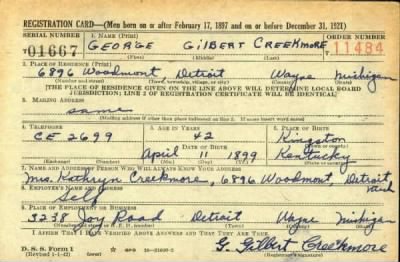 REGISTRATION CARD—(Men born on or after February 17, 1897 and on or before December 31, 1921)
SERIAL NUMBER 1. NAME (Print) ORDER NUMBER
T 01667 GEORGE GILBERT CREEKMORE T 11484
(First) (Middle) (Last)
2. PLACE OF RESIDENCE (Print)
6896 Woodmont, Detroit Wayne Michigan
(Number and street) (Town, township, village, or city) (County) (State)
[THE PLACE OF RESIDENCE GIVEN ON THE LINE ABOVE WILL DETERMINE LOCAL BOARD
JURISDICTION; LINE 2 OF REGISTRATION CERTIFICATE WILL BE IDENTICAL]
3. MAILING ADDRESS
same
[Mailing address if other than place indicated on line 2. If same insert word same]
4. TELEPHONE 5. AGE IN YEARS 6. PLACE OF BIRTH
CE 2699 42 Kingston
DATE OF BIRTH
April 11 1899 Kentucky
(Exchange) (Number) (Mo.) (Day) (Yr.) (State or country)
7. NAME AND ADDRESS OF PERSON WHO WILL ALWAYS KNOW YOUR ADDRESS
Mrs. Kathryn Creekmore, 6896 Woodmont, Detroit, Mich
8. EMPLOYER'S NAME AND ADDRESS
Self
9. PLACE OF EMPLOYMENT OR BUSINESS
3238 Joy Road Detroit Wayne Michigan
(Number and street or R. F. D. number) (Town) (County) (State)
I AFFIRM THAT I HAVE VERIFIED ABOVE ANSWERS AND THAT THEY ARE TRUE.
D. S. S. Form 1
(Revised 1-1-42) (over) G. Gilbert Creekmore
(Registrant's signature)